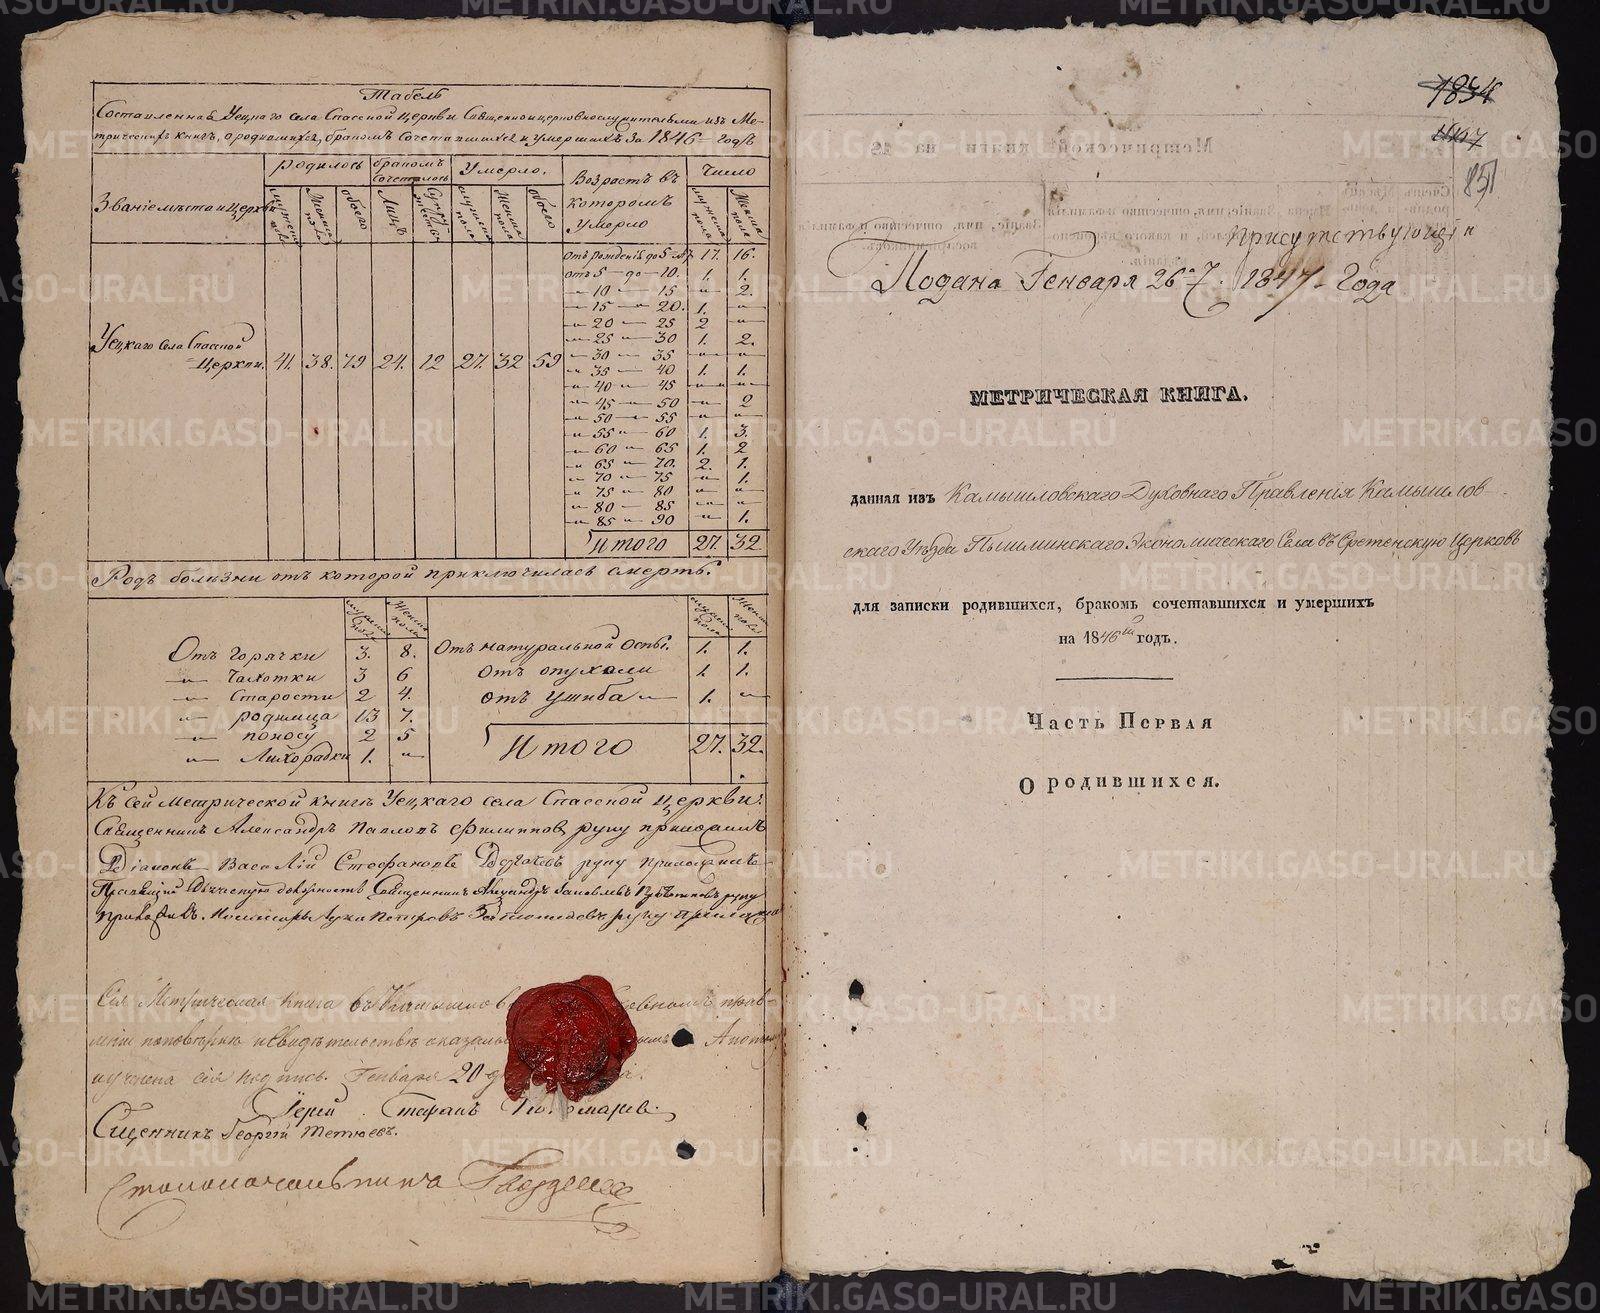 Табель
Составленная Уецкаго села Спасской Церкви Священноцерковнослужительми изъ Ме-
трическихъ книгъ, о родившихся, бракомъ сочетавшихся и умершихъ за 1846 годъ
Званіе мѣста и Церкви
Родилось
бракомъ сочеталось
Умерло.
Возрастъ въ которомъ умерло
Число
мужеска пола
Женска пола
обоего
Лицъ
Супружествъ
мужеска пола
Женска пола
обоего
мужеска пола
Женска пола
Уецкаго села Спасской Церкви. 41. 38. 79 24. 12 27. 32 59
Отъ рожденія до 5 лѣт 17. 16.
отъ 5 — до — 10. 1. 1.
— 10 — 15 — 2.
— 15 — 20. 1. —
— 20 — 25 2 —
— 25 — 30 1. 2.
— 30 — 35 — —
— 35 — 40 1. 1.
— 40 — 45 — —
— 45 — 50 — 2
— 50 — 55 — —
— 55 — 60 1. 3.
— 60 — 65 1. 2
— 65 — 70. 2. 1.
— 70 — 75 — 1.
— 75 — 80 — —
— 80 — 85 — —
— 85 — 90 — 1.
Итого 27. 32
Родъ болѣзни отъ которой приключилась смерть.
мужеска пола
Женска пола
мужеска пола
Женска пола
Отъ горячки 3. 8.
— Чахотки 3 6
— Старости 2 4.
— родимца 13 7.
— поносу 2 5
— Лихорадки 1. —
Отъ натуральной оспы. 1. 1.
отъ опухоли 1. 1.
отъ ушиба 1. —
Итого 27. 32.
Къ сей Метрической книгѣ Уецкаго села Спасской Церкви
Священникъ Александръ Павловъ Филипповъ руку приложилъ
Діаконъ Василій Стефановъ руку приложилъ
должность Священникъ руку
приложилъ. Лука Петровъ руку приложилъ
Сія Метрическая Книга въ Камышлов
и свидѣтельствѣ оказалась
учинена сія подпись. Генваря 20
Іерей Стефанъ Пономарев
Сщенникъ Георгій Тетюевъ.
Столоначальника
1834
1847
851
Присутствующій
Подана Генваря 26го 1847 Года
МЕТРИЧЕСКАЯ КНИГА.
данная изъ Камышловскаго Духовнаго Правленія Камышлов-
скаго Уѣзда Пышминскаго Экономическаго Села въ Срѣтенскую Церковь
для записки родившихся, бракомъ сочетавшихся и умершихъ
на 1846й годъ.
Часть Первая
О родившихся.
METRIKI.GASO-URAL.RU